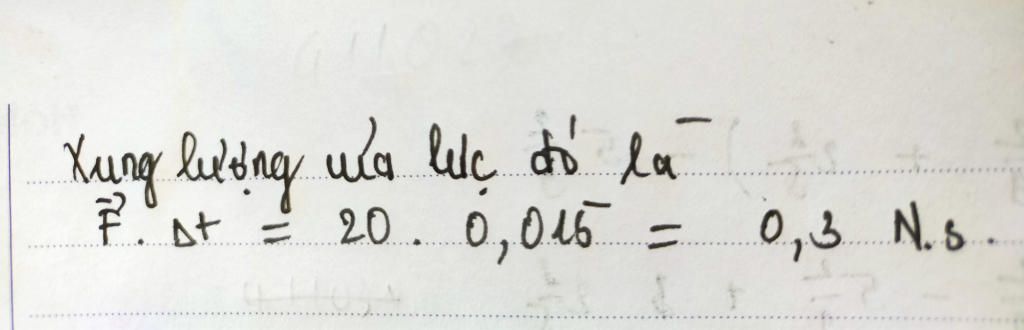 Xung lượng của lực đó là
F⃗. Δt = 20 . 0,015 = 0,3 N.s.